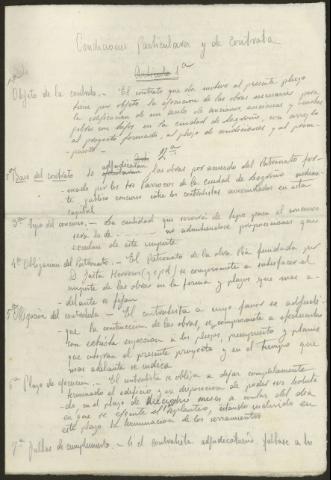 Condiciones particulares y de contrata
Artículo 1ª
Objeto de la contrata.- El contrato que da motivo al presente pliego
tiene por objeto la ejecución de las obras necesarias para
la edificación de un asilo de ancianos, ancianas y
pobres en la ciudad de Logroño, con arreglo
al proyecto formado, al pliego de condiciones y al presu-
puesto.-
2ª
Base del contrato Se las obras por acuerdo del Patronato for-
mado por los párrocos de la ciudad de Logroño median-
te público concurso entre los contratistas en esta
capital
3ª Tipo del concurso.- La cantidad que servirá de tipo para el concurso
será la de .- no admitiéndose proposiciones que
excedan de este importe
4ª Obligación del Patronato.- El Patronato de la obra Pía fundada por
D. se compromete a satisfacer el
importe de las obras en la forma y plazos que mas a-
delante se fijan
5ª Obligación del contratista.- El contratista a cuyo favor se adjudi-
que la contratación de las obras, se compromete a efectuarlas
con estricta sujeción a los pliegos, presupuesto y planos
que integran el presente proyecto y en el tiempo que
mas adelante se indica
6ª Plazo de ejecución.- El contratista se obliga a dejar completamente
terminado el edificio y en disposición de poder ser habita-
do, en el plazo de dieciocho meses a contar del día
en que se efectúe el replanteo, estando incluido en
este plazo la terminación de los
7ª Faltas de cumplimiento.- Si el contratista adjudicatario, faltase a lo